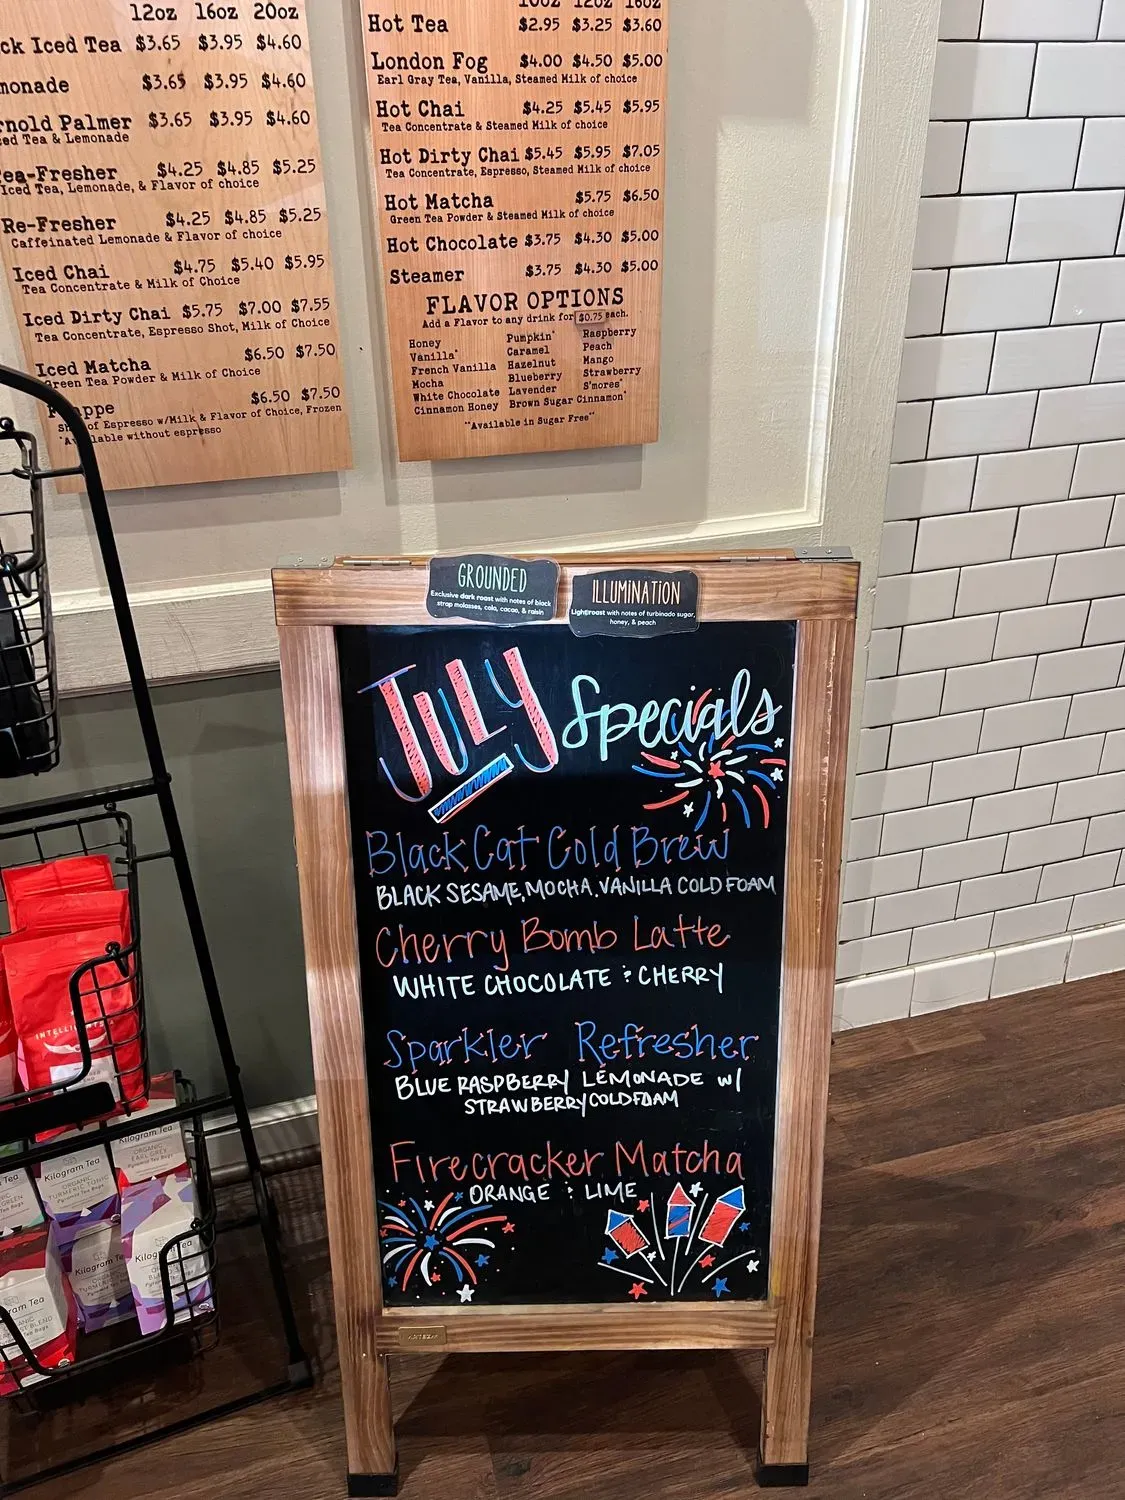 12oz 16oz 20oz
ck Iced Tea $3.65 $3.95 $4.60
monade $3.65 $3.95 $4.60
rnold Palmer $3.65 $3.95 $4.60
ced Tea & Lemonade
ea-Fresher $4.25 $4.85 $5.25
Iced Tea, Lemonade, & Flavor of choice
Re-Fresher $4.25 $4.85 $5.25
Caffeinated Lemonade & Flavor of choice
Iced Chai $4.75 $5.40 $5.95
Tea Concentrate & Milk of Choice
Iced Dirty Chai $5.75 $7.00 $7.55
Tea Concentrate, Espresso Shot, Milk of Choice
Iced Matcha $6.50 $7.50
Green Tea Powder & Milk of Choice
appe $6.50 $7.50
of Espresso w/Milk & Flavor of Choice, Frozen
lable without espresso
10oz 12oz 16oz
Hot Tea $2.95 $3.25 $3.60
London Fog $4.00 $4.50 $5.00
Earl Gray Tea, Vanilla, Steamed Milk of choice
Hot Chai $4.25 $5.45 $5.95
Tea Concentrate & Steamed Milk of choice
Hot Dirty Chai $5.45 $5.95 $7.05
Tea Concentrate, Espresso, Steamed Milk of choice
Hot Matcha $5.75 $6.50
Green Tea Powder & Steamed Milk of choice
Hot Chocolate $3.75 $4.30 $5.00
Steamer $3.75 $4.30 $5.00
FLAVOR OPTIONS
Add a Flavor to any drink for $0.75 each.
Honey Pumpkin* Raspberry
Vanilla* Caramel Peach
French Vanilla Hazelnut Mango
Mocha Blueberry Strawberry
White Chocolate Lavender S'mores*
Cinnamon Honey Brown Sugar Cinnamon*
"*Available in Sugar Free*"
GROUNDED
Exclusive dark roast with notes of black
strap molasses, cola, cacao, & raisin
ILLUMINATION
Light roast with notes of turbinado sugar,
honey, & peach
JULY Specials
Black Cat Cold Brew
BLACK SESAME, MOCHA, VANILLA COLD FOAM
Cherry Bomb Latte
WHITE CHOCOLATE & CHERRY
Sparkler Refresher
BLUE RASPBERRY LEMONADE w/
STRAWBERRY COLD FOAM
Firecracker Matcha
ORANGE & LIME
INTELLIGENTS
Kilogram Tea
ORGANIC
EARL GREY
Pyramid Tea Bags
Kilogram Tea
ORGANIC
TURMERIC TONIC
Pyramid Tea Bags
GREEN
Kilogram Tea
Kilogram Tea
gram Tea
ORGANIC
BLEND
Tea Bags